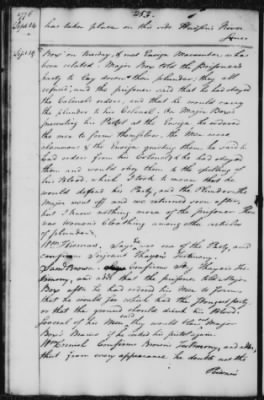 253.
1776
Septr. 24
has taken place on this side Harlem River
Since
Sept 24
Box on Monday, & met Ensign Macumber, who
been related; Major Box told the Prisoners
party to lay down their plunder; they all
refused; and the prisoner said that he had obeyed
the Colonels orders, and that he would carry
the plunder to his Colonel, on Major Box's
presenting his Pistol at the Ensign, he ordered
the men to form themselves, the Men were
clamorous & the Ensign quieting them, he said he
had orders from his Colonel, & he had obeyed
them and would obey them to the spilling of
his blood, which I took to mean that he
would defend his Party, and the Plunder, the
Major went off and we returned soon after,
but I know nothing more of the prisoner. There
was Womens Cloathing among other articles
of plunder.
Wm. Says he was one of the Party, and
confirms Serjeant Thayers Testimony.
Saml Brown Confirms also, Thayers Tes-
timony, and adds that the prisoner told Major
Box after he had ordered his Men to form
that he would far which had the strongest party
or that the ground should drink his Blood.
Several of his Men, said they would blow out Major
Box's Brains if he cocked his pistol again.
Wm. Confirms Browns Testimony, and adds,
that from every appearance he doubts not the
Prisoner